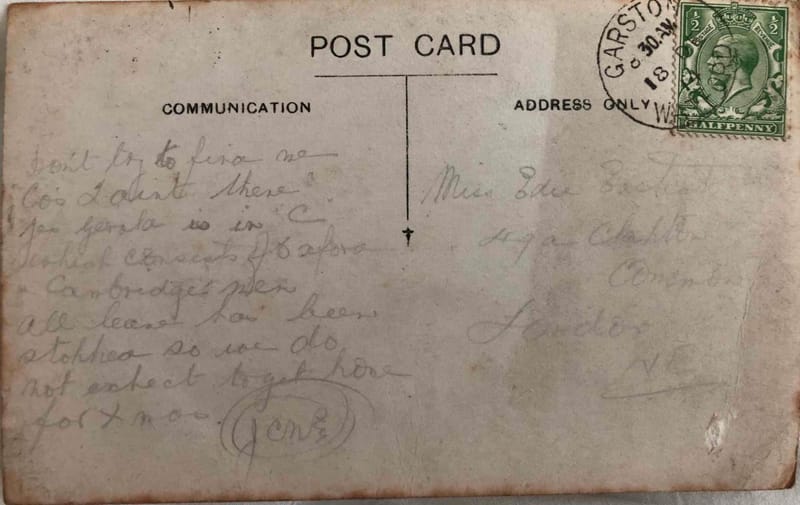 POST CARD
COMMUNICATION
ADDRESS ONLY
GARSTO
8 30 AM
18 D
W
HALFPENNY
Don't try to find me
Cos I aint there
Yes Gerald is in "C"
which consists of Oxford
& Cambridge men
All leave has been
stopped so we do
not expect to get home
for Xmas.
Miss Edie
49a Clapton
Common
London
N.E.